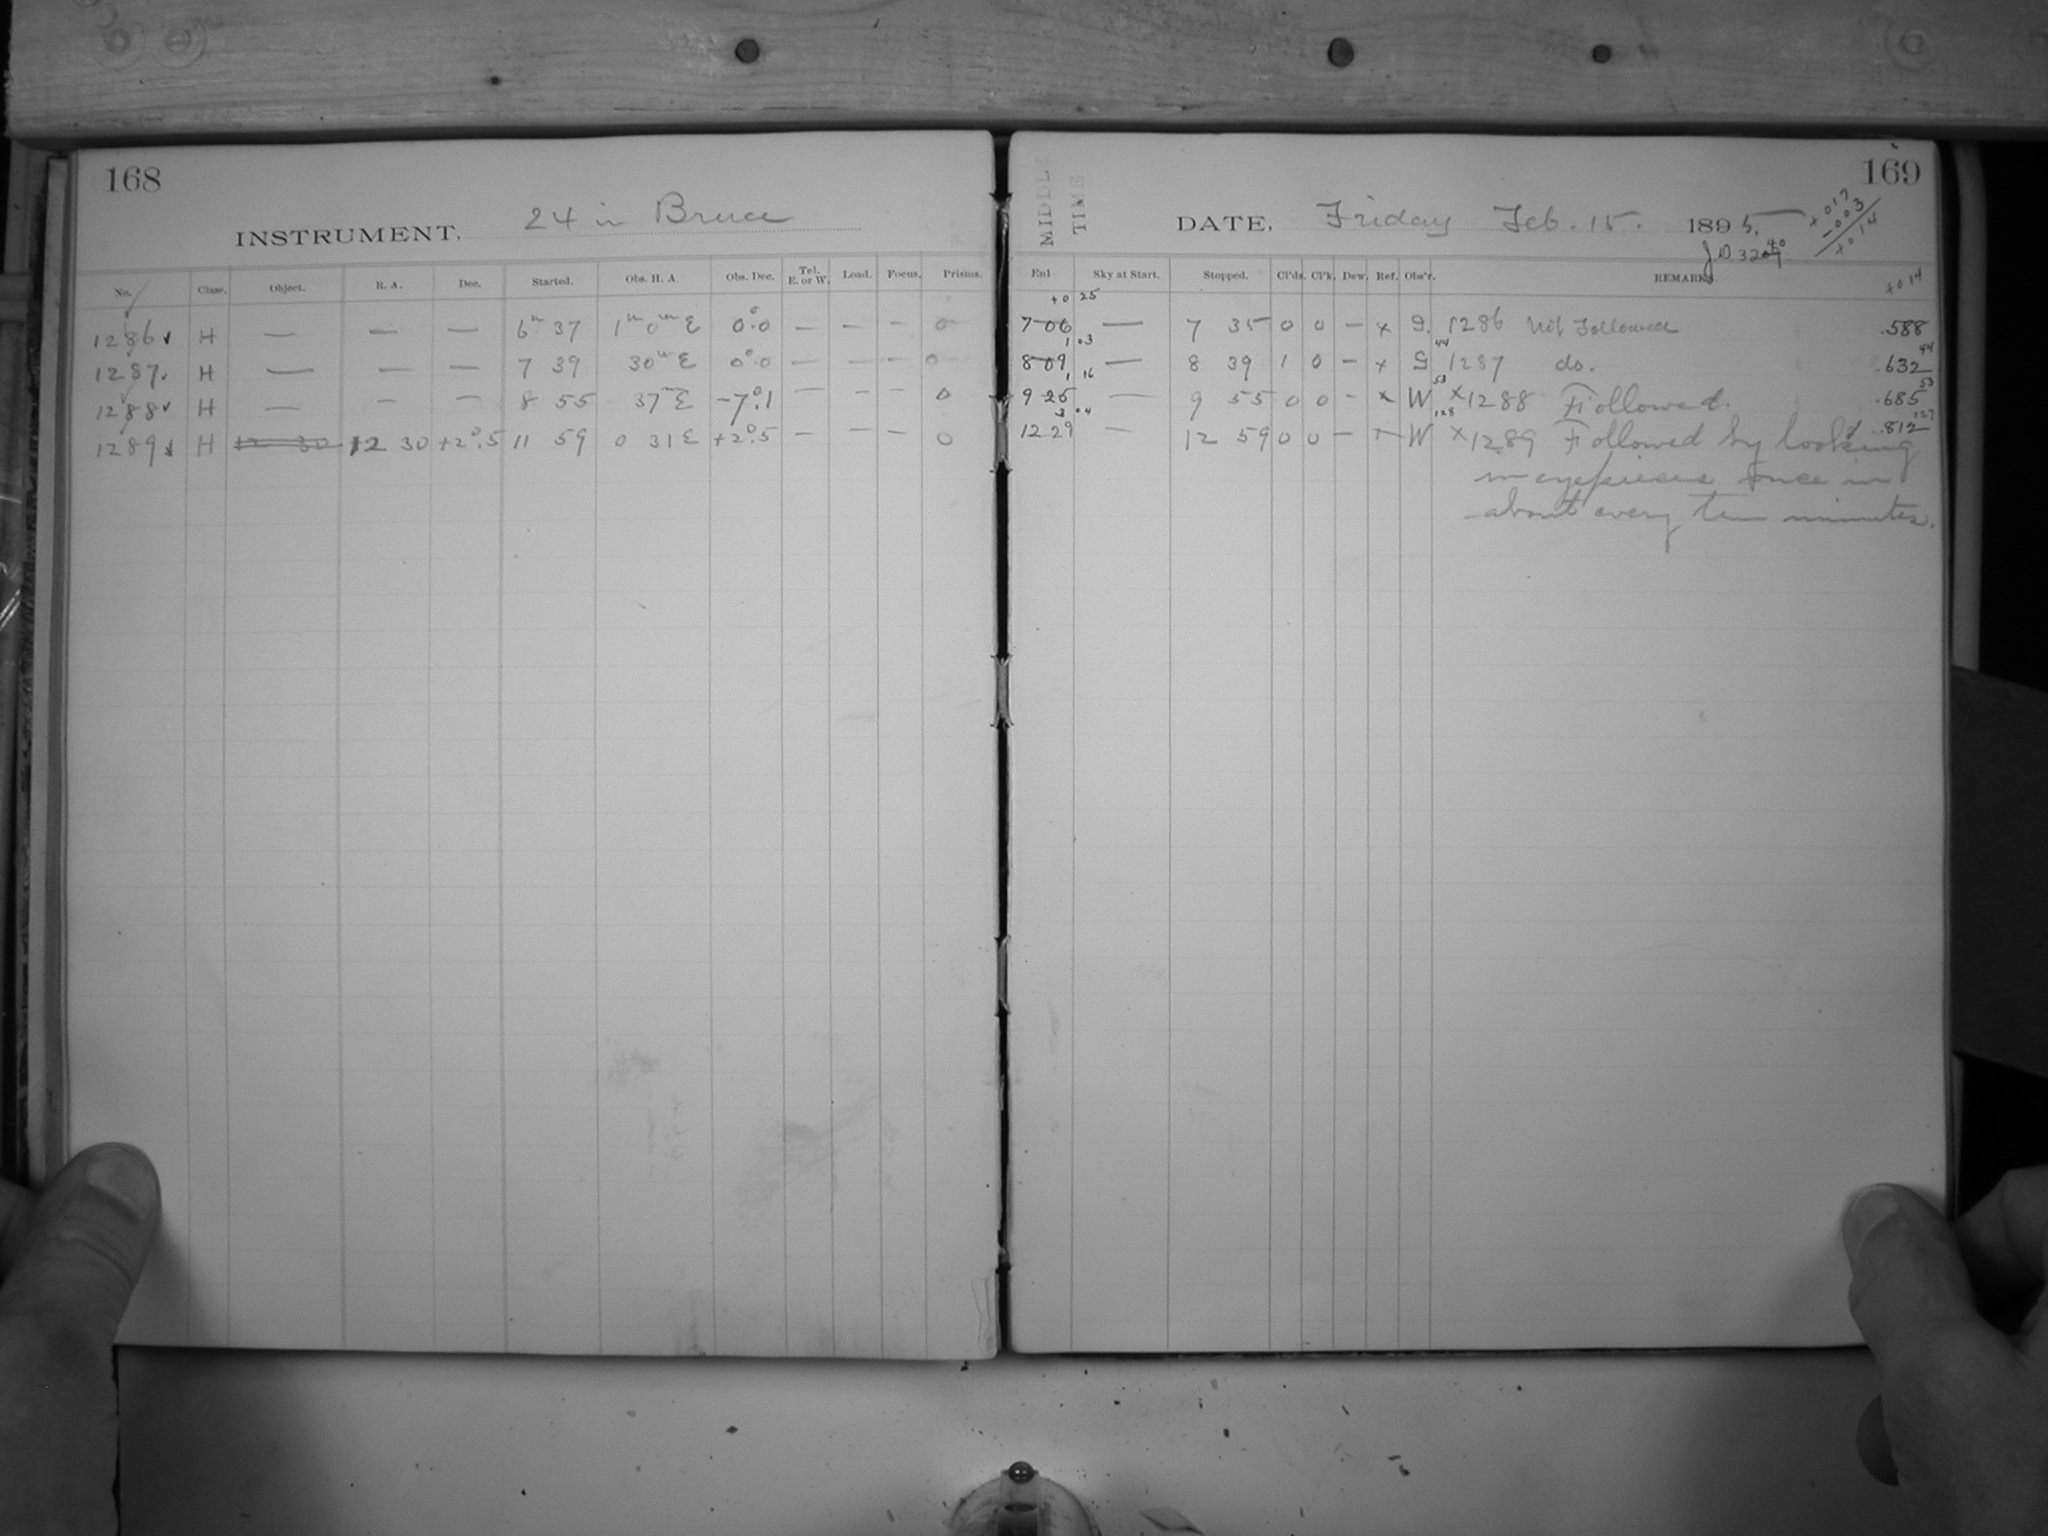 168
INSTRUMENT, 24 in Bruce
No. Class. Object. R. A. Dec. Started. Obs. H. A. Obs. Dec. Tel. E. or W. Load. Focus. Prisms.
1286 H — — — 6h 37 1h 0m E 0°.0 — — — 0
1287 H — — — 7 39 30m E 0°.0 — — — 0
1288 H — — — 8 55 37m E -7°.1 — — — 0
1289 H 12 30 12 30 +2°.5 11 59 0 31 E +2°.5 — — — 0
169
MIDDLE TIME
DATE, Friday Feb. 15. 1895.
+017
-003
+014
J.D. 32
Enl Sky at Start. Stopped. Cl'ds. Cl'k. Dew. Ref. Obs'r. REMARKS
+014
+0 25
7 06 — 7 35 0 0 — x S. 1286 Not Followed .588
1.03 44 44
8 09 — 8 39 1 0 — x S 1287 do. .632
1 16 53 53
9 25 — 9 55 0 0 - x W x1288 Followed. .685
3.04 128 127
12 29 — 12 59 0 0 — W x1289 Followed by looking .812
in eyepieces once in
about every ten minutes.